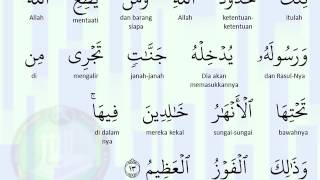 تِلْكَ حُدُودُ اللَّهِ وَمَنْ يُطِعِ اللَّهَ
itulah ketentuan-ketentuan Allah dan barang siapa mentaati Allah
وَرَسُولَهُۥ يُدْخِلْهُ جَنَّٰتٍ تَجْرِى مِن
dan Rasul-Nya Dia akan memasukkannya janah-janah mengalir di
تَحْتِهَا ٱلْأَنْهَٰرُ خَٰلِدِينَ فِيهَا ۚ
bawahnya sungai-sungai mereka kekal di dalam nya
وَذَٰلِكَ ٱلْفَوْزُ ٱلْعَظِيمُ ١٣